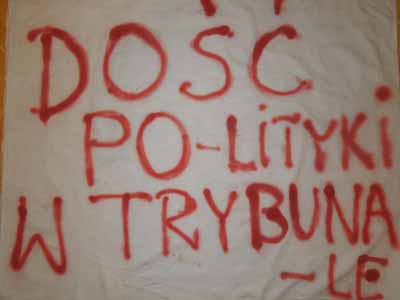 DOŚĆ
PO-LiTYKi
W TRYBUNA
-LE